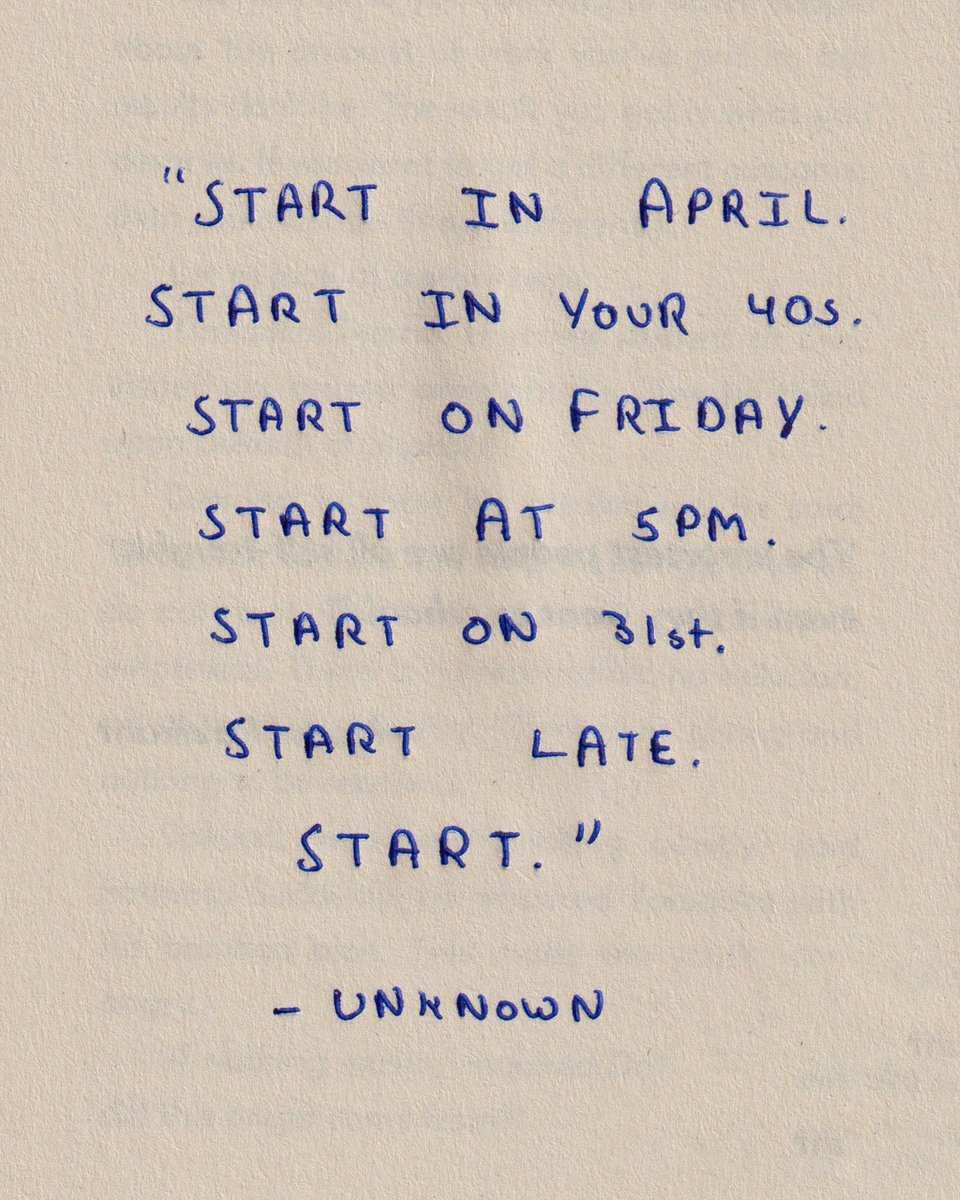 "START IN APRIL.
START IN YOUR 40s.
START ON FRIDAY.
START AT 5PM.
START ON 31st.
START LATE.
START."
- UNKNOWN